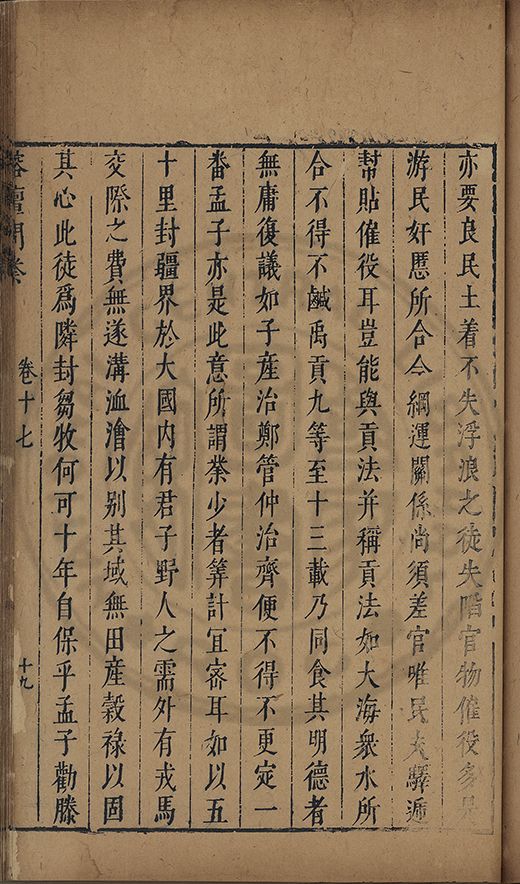 亦要良民土着不失浮浪之徒失階官物僱役多是
游民奸慝所合今綱運關係尚須差官唯民夫驛遞
幫貼僱役耳豈能與貢法并稱貢法如大海衆水所
合不得不鹹禹貢九等至十三載乃同食其明德者
無庸復議如子產治鄭管仲治齊便不得不更定一
番孟子亦是此意所謂業少者筭計宜密耳如以五
十里封疆界於大國内有君子野人之需外有戎馬
交際之費無遂溝洫澮以别其域無田產穀祿以固
其心此徒爲隣封芻牧何可十年自保乎孟子勸滕
榕壇問業 卷十七 十九